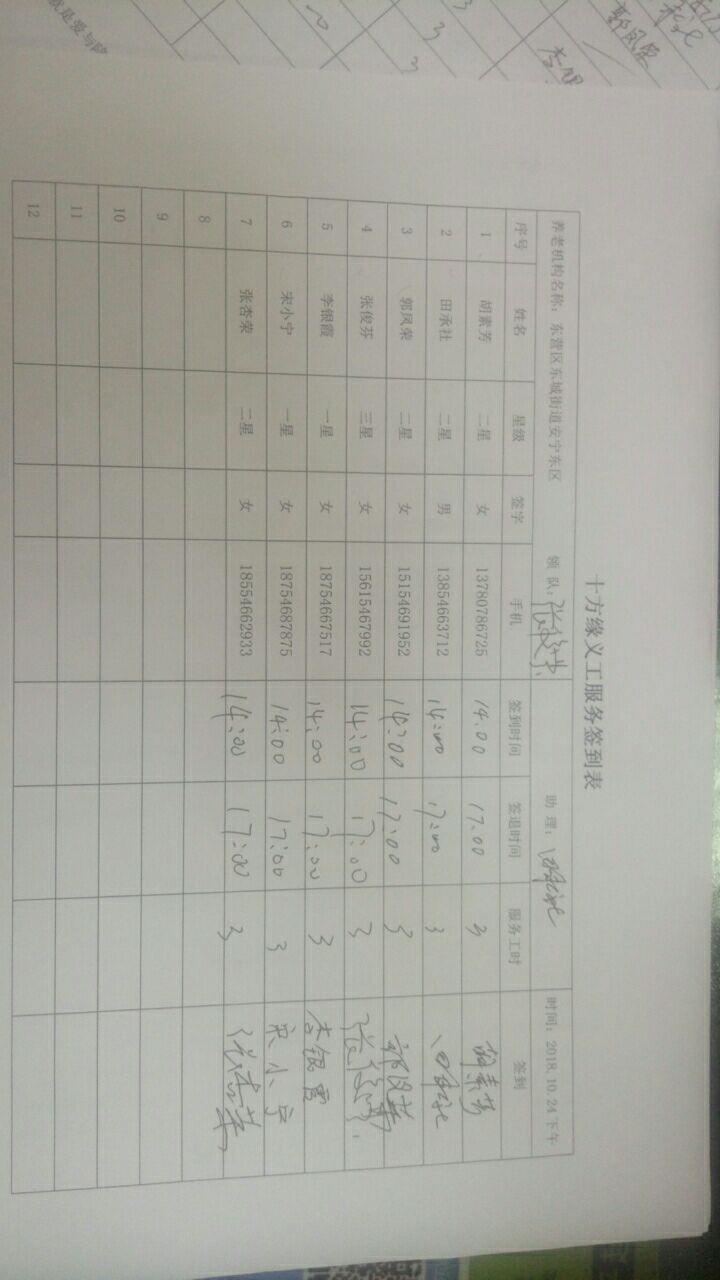 十方缘义工服务签到表
养老机构名称：东营区东城街道安宁东区 领 队：张俊芬 助 理：田承社 时间：2018.10.24下午
序号 姓名 星级 签字 手机 签到时间 签退时间 服务工时 签到
1 胡素芳 二星 女 13780786725 14.00 17.00 3 胡素芳
2 田承社 二星 男 13854663712 14:00 17:00 3 田承社
3 郭凤荣 二星 女 15154691952 14:00 17:00 3 郭凤荣
4 张俊芬 三星 女 15615467992 14:00 17:00 3 张俊芬
5 李银霞 一星 女 18754667517 14:00 17:00 3 李银霞
6 宋小宁 一星 女 18754687875 14:00 17:00 3 宋小宁
7 张杏荣 二星 女 18554662933 14:00 17:00 3 张杏荣
8
9
10
11
12
就是爱与陪
3
3
郭凤荣